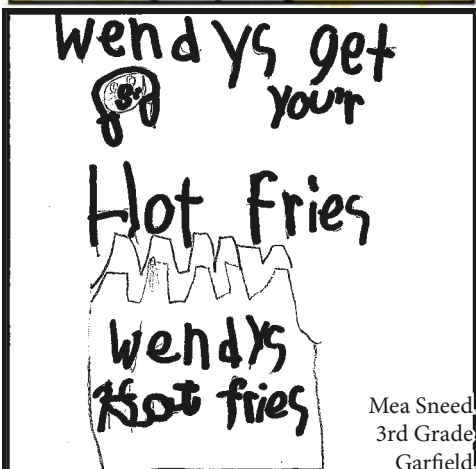 Wendys get
your
Hot Fries
Wendys
Hot fries
Mea Sneed
3rd Grade
Garfield